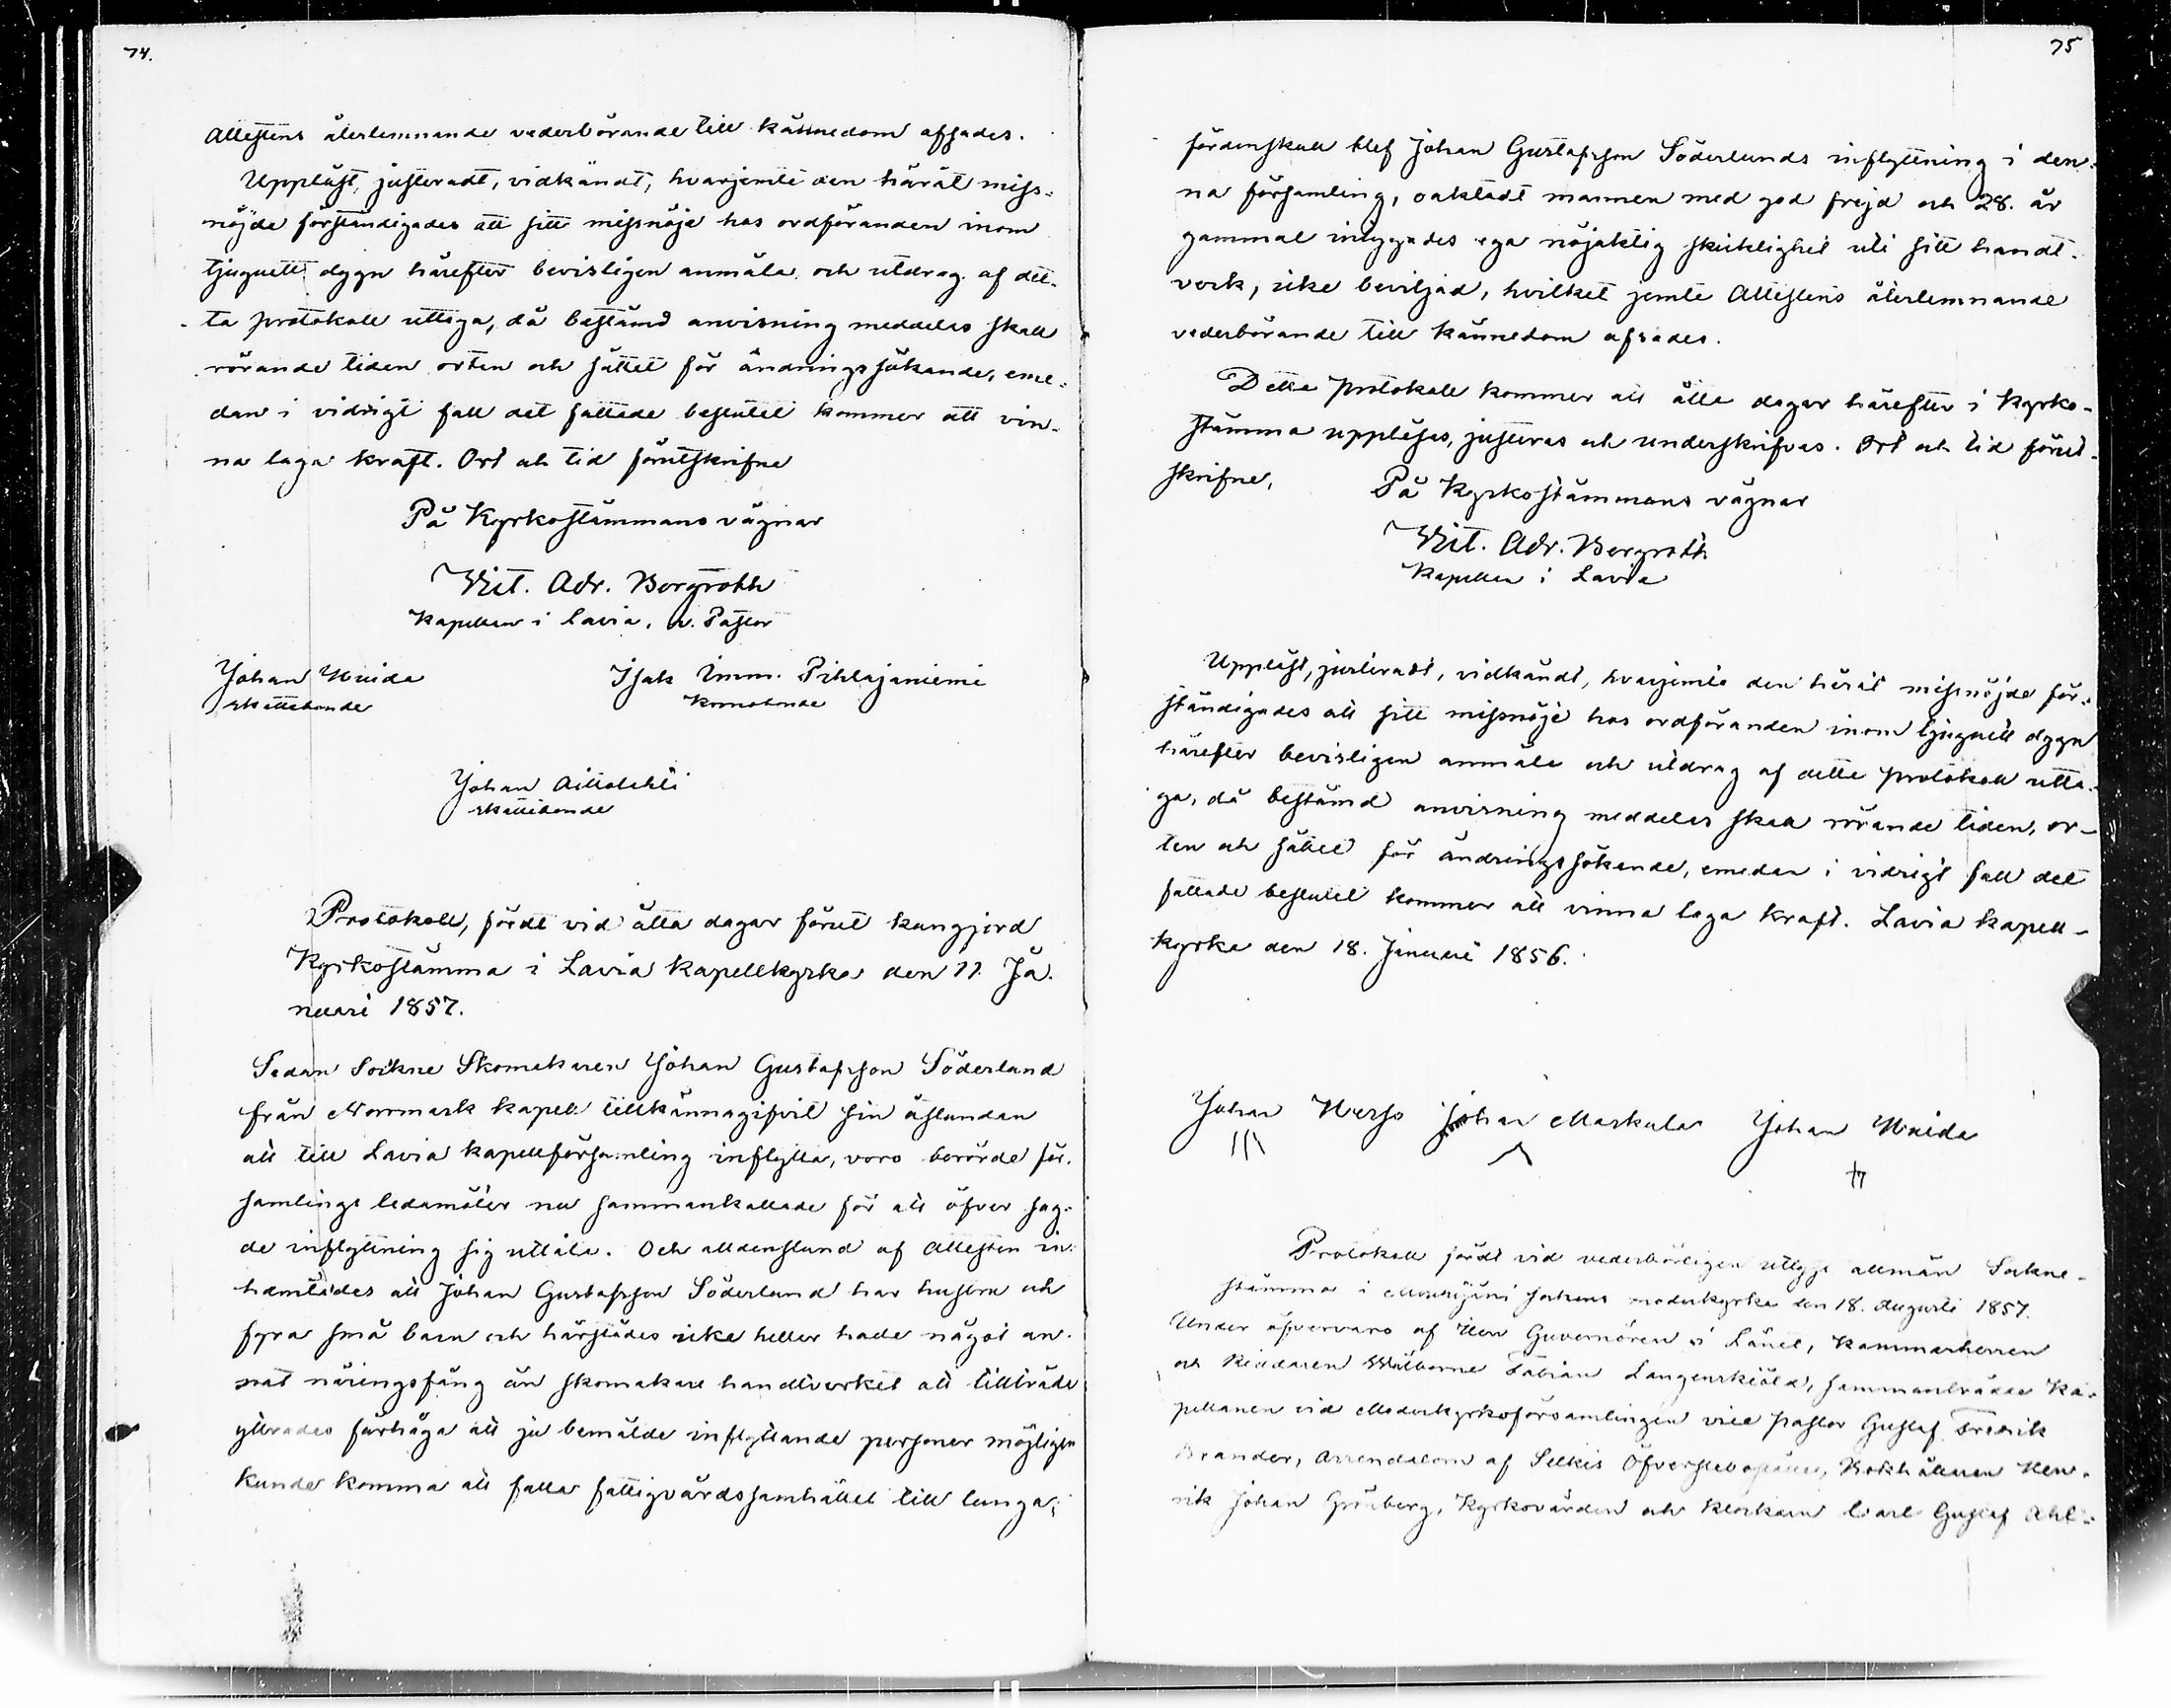 74.
Attestens återlemnande vederbörande till kännedom afsades.
Uppläst, justeradt, vidkändt, hvarjemte den häråt miss-
nöjde förständigades att sitt missnöje hos ordföranden inom
tjuguett dygn härefter bevisligen anmäla och utdrag af det-
ta protokoll uttaga, då bestämd anvisning meddelas skall
rörande tiden orten och sättet för ändringssökande, eme-
dan i vidrigt fall det fattade beslutet kommer att vin-
na laga kraft. Ort och tid förutskrifne
På Kyrkostämmans vägnar
Vit. Adr. Bergroth
Kapellan i Lavia, v. Pastor
Johan Uuida Isak Imm. Pihlajaniemi
skattebonde Kronobonde
Johan Aittolahti
skattebonde
Protokoll, fördt vid åtta dagar förut kungjord
Kyrkostämma i Lavia Kapellkyrka den 11. Ja-
nuari 1857.
Sedan Sockne Skomakaren Johan Gustafsson Söderlund
från Norrmark Kapell tillkännagifvit sin åstundan
att till Lavia kapellförsamling inflytta, voro berörde för-
samlings ledamöter nu sammankallade för att öfver sag-
de inflyttning sig utlåta. Och alldenstund af Attesten in-
hemtades att Johan Gustafsson Söderlund har hustru och
fyra små barn och härstädes icke heller hade något an-
nat näringsfång än skomakare handtverket att tillträda
yttrades farhåga att ju bemälde inflyttande personer möjligen
kunde komma att falla fattigvårdssamhället till tunga;
75
fördenskull blef Johan Gustafsson Söderlunds inflyttning i den-
na församling, oaktadt mannen med god frejd och 28. år
gammal intygades ega nöjaktig skicklighet uti sitt handt-
verk, icke beviljad, hvilket jemte Attestens återlemnande
vederbörande till kännedom afsades.
Detta protokoll kommer att åtta dagar härefter i Kyrko-
stämma uppläsas, justeras och underskrifvas. Ort och tid förut-
skrifne,
På Kyrkostämmans vägnar
Vit. Adr. Bergroth
Kapellan i Lavia
Uppläst, justeradt, vidkändt, hvarjemte den häråt missnöjde för-
ständigades att sitt missnöje hos ordföranden inom tjuguett dygn
härefter bevisligen anmäla och utdrag af detta protokoll utta-
ga, då bestämd anvisning meddelas skall rörande tiden, or-
ten och sättet för ändringssökande, emedan i vidrigt fall det
fattade beslutet kommer att vinna laga kraft. Lavia kapell-
kyrka den 18. Januari 1856.
Johan Johan Markula Johan Uuida
Protokoll fördt vid vederbörligen utlyst allmän Sockne-
stämma i Mouhijärvi Sockens moderkyrka den 18. Augusti 1857.
Under öfvervaro af Herr Guvernören i Länet, Kammarherren
och Riddaren Fabian Langenskiöld, sammanträdde Ka-
pellanen vid Moderkyrkoförsamlingen vice pastor Gustaf Fredrik
Brander, Arrendatorn af Selkis Öfverstebostället, Rusthållaren Hen-
rik Johan Grönberg, Kyrkovärden och Klockaren Carl Gustaf Ahl-